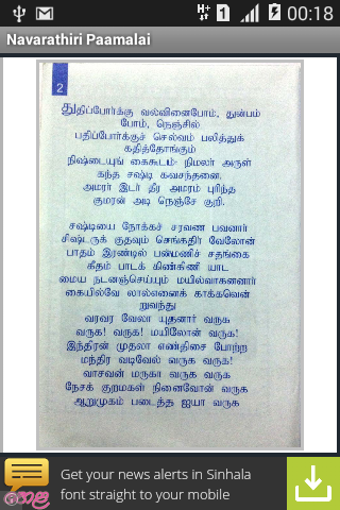 00:18
Navarathiri Paamalai
2
துதிப்போர்க்கு வல்வினைபோம், துன்பம்
போம், நெஞ்சில்
பதிப்போர்க்குச் செல்வம் பலித்துக்
கதித்தோங்கும்
நிஷ்டையுங் கைகூடம்- நிமலர் அருள்
கந்த சஷ்டி கவசந்தனை,
அமரர் இடர் தீர அமரம் புரிந்த
குமரன் அடி நெஞ்சே குறி.
சஷ்டியை நோக்கச் சரவண பவனார்
சிஷ்டருக் குதவும் செங்கதிர் வேலோன்
பாதம் இரண்டில் பன்மணிச் சதங்கை
கீதம் பாடக் கிண்கிணி யாட
மைய நடனஞ்செய்யும் மயில்வாகனனார்
கையில்வே லால்எனைக் காக்கவென்
றுவந்து
வரவர வேலா யுதனார் வருக
வருக! வருக! மயிலோன் வருக!
இந்திரன் முதலா எண்திசை போற்ற
மந்திர வடிவேல் வருக வருக!
வாசவன் மருகா வருக வருக
நேசக் குறமகள் நினைவோன் வருக
ஆறுமுகம் படைத்த ஐயா வருக
Get your news alerts in Sinhala
font straight to your mobile